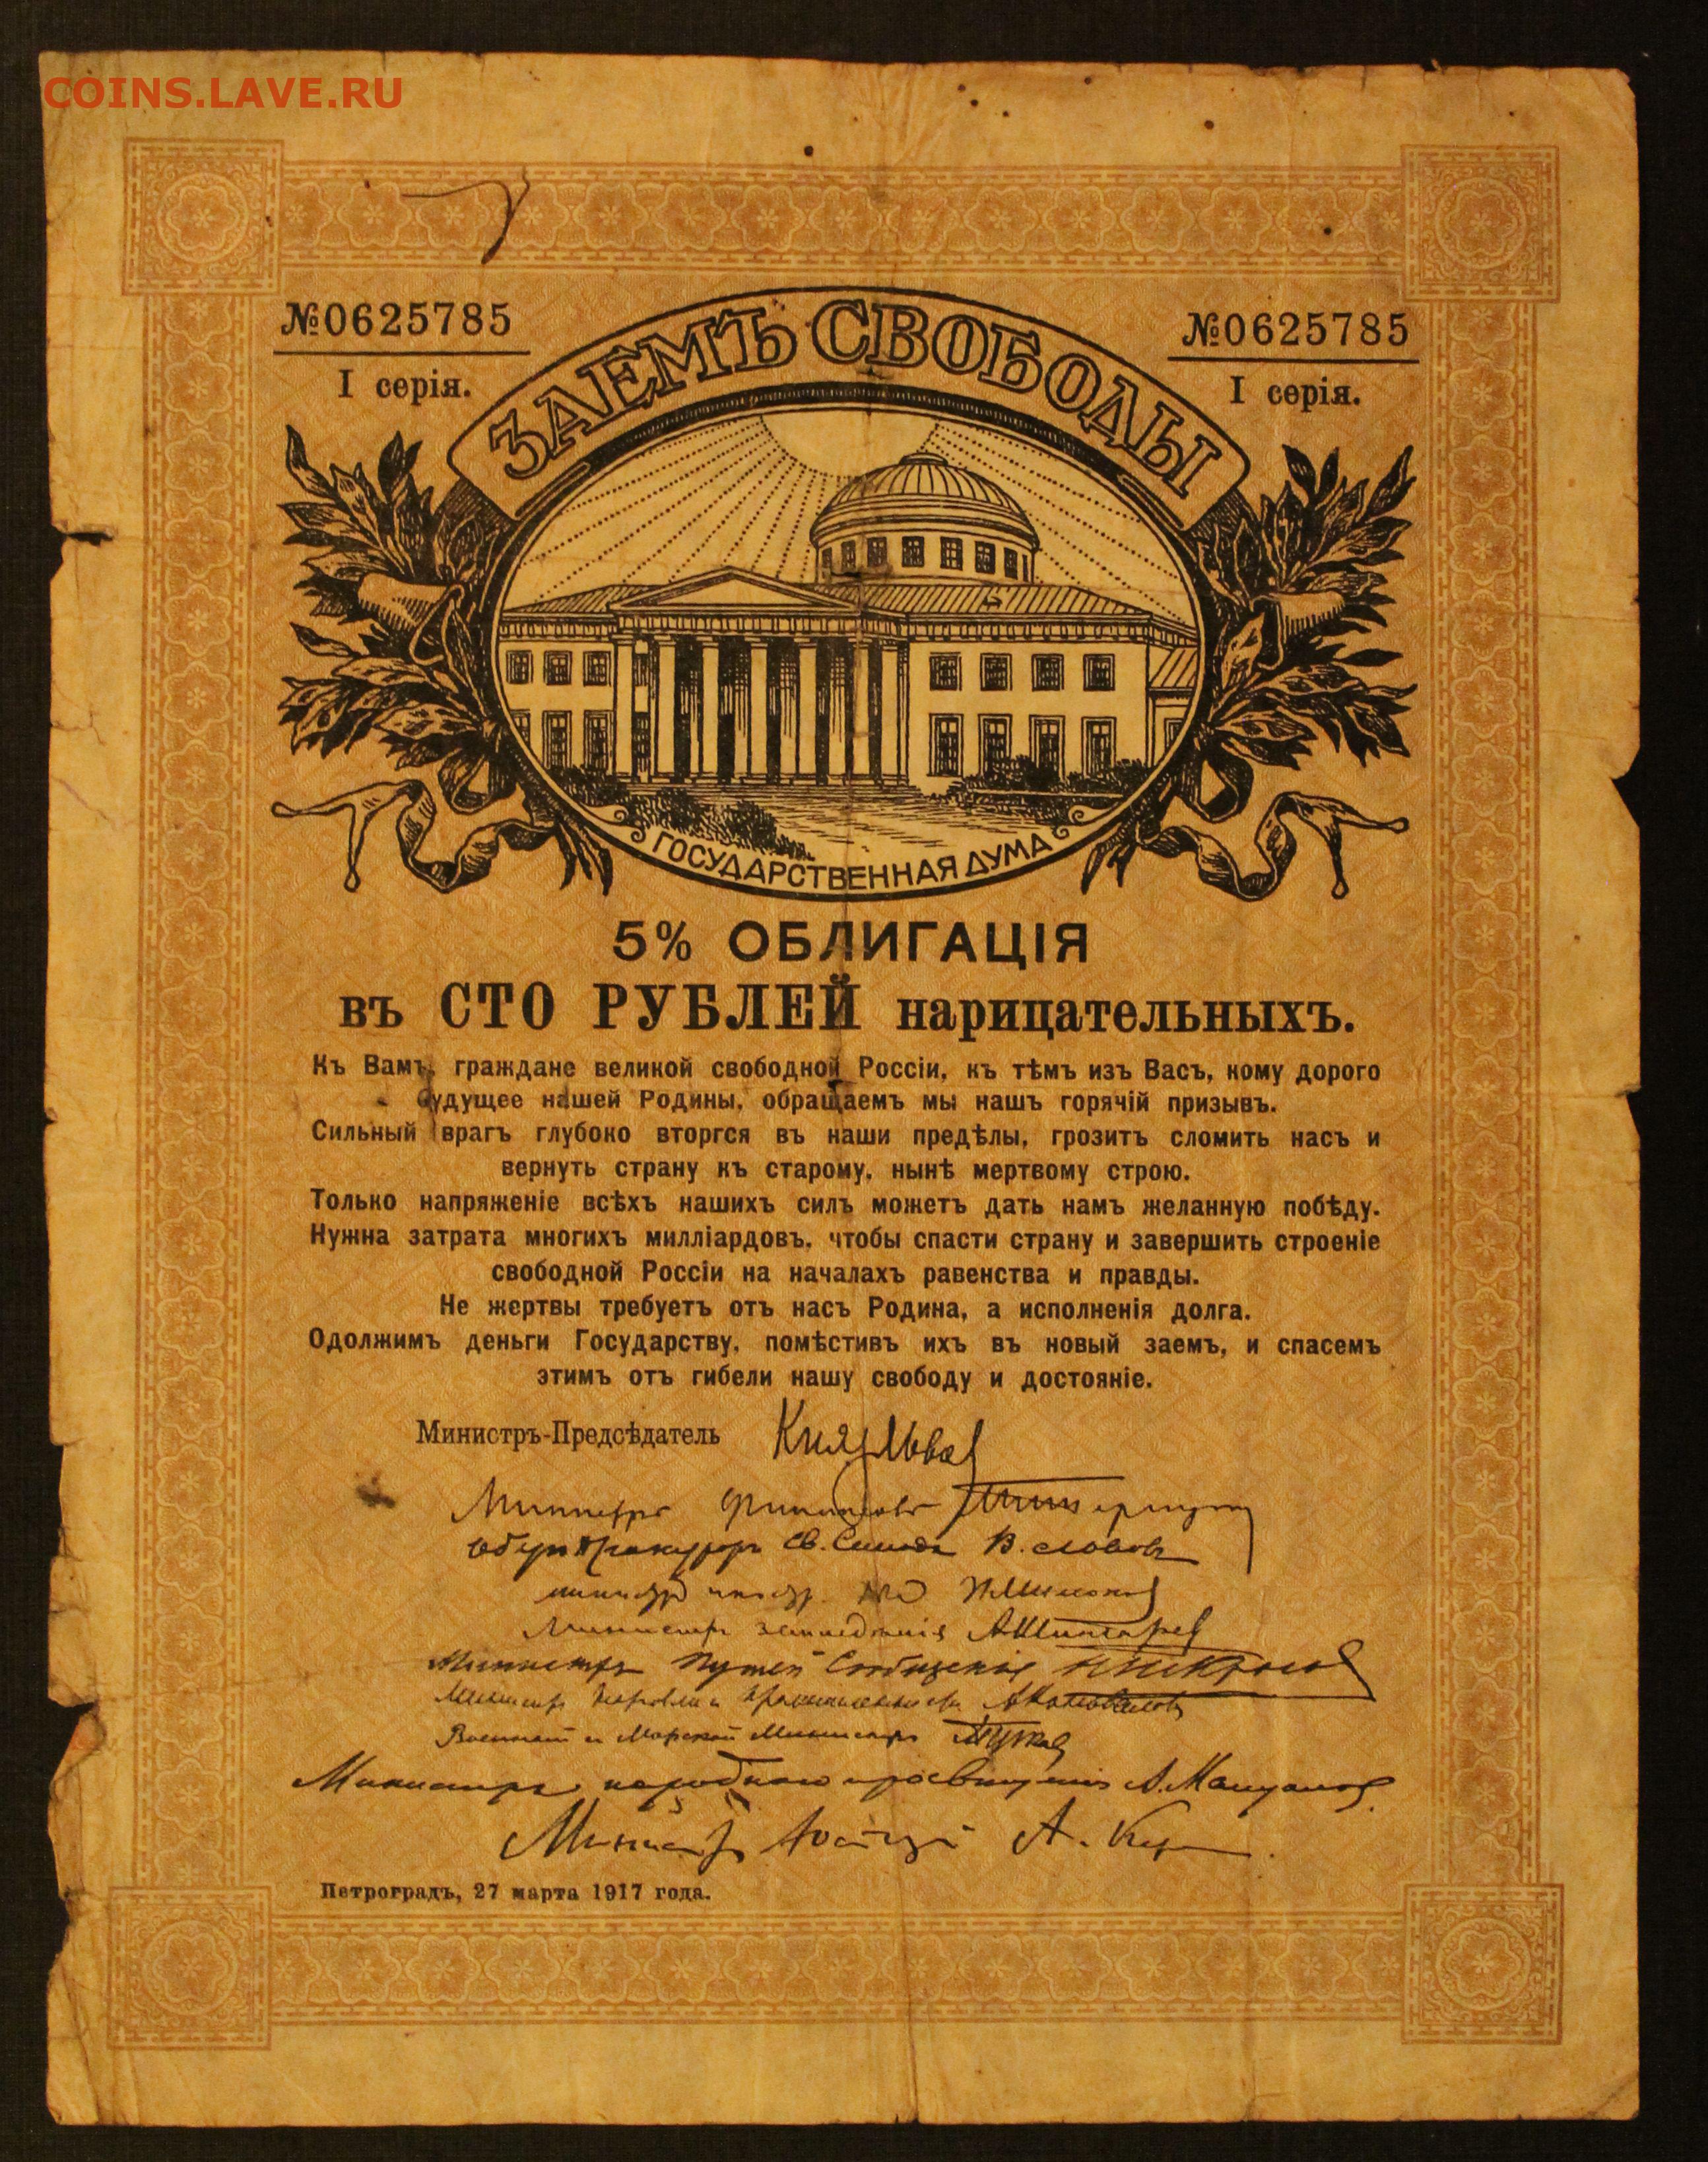 COINS.LAVE.RU
№0625785
№0625785
I серія.
I серія.
ЗАЕМЪ СВОБОДЫ
ГОСУДАРСТВЕННАЯ ДУМА
5% ОБЛИГАЦІЯ
въ СТО РУБЛЕЙ нарицательныхъ.
Къ Вамъ, граждане великой свободной Россіи, къ тѣмъ изъ Васъ, кому дорого
будущее нашей Родины, обращаемъ мы нашъ горячій призывъ.
Сильный врагъ глубоко вторгся въ наши предѣлы, грозитъ сломить насъ и
вернуть страну къ старому, нынѣ мертвому строю.
Только напряженіе всѣхъ нашихъ силъ можетъ дать намъ желанную побѣду.
Нужна затрата многихъ милліардовъ, чтобы спасти страну и завершить строеніе
свободной Россіи на началахъ равенства и правды.
Не жертвы требуетъ отъ насъ Родина, а исполненія долга.
Одолжимъ деньги Государству, помѣстивъ ихъ въ новый заемъ, и спасемъ
этимъ отъ гибели нашу свободу и достояніе.
Министръ-Предсѣдатель Князь Львов
Министръ Финансовъ
Оберъ Прокуроръ Св. Синода В. Львовъ
Министр
Министръ земледѣлія А Шингарев
Министръ Путей Сообщенія Н Некрасов
Министр Торговли и Промышленности А Коновалов
Военный и Морской Министръ
Министръ народнаго просвѣщенія А. Мануилов
Министр Юстиціи А. Кер
Петроградъ, 27 марта 1917 года.